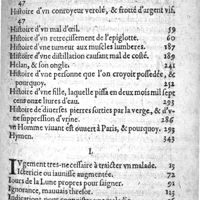 47
Histoire d'vn conroyeur verolé, & frotté d'argent vif.
47
Histoire d'vn mal d'œil. 59
Histoire d'vn retrecissement de l'epiglotte. 60
Histoire d'vne tumeur aux muscles lumbares. 187
Histoire d'vne distillation causant mal de costé. 189
Helan, & son ongle. 241
Histoire d'vne personne que l'on croyoit possedée, & pourquoy. 252
Histoire d'vne fille, laquelle pissa en deux mois sept cens onze liures d'eau. 293
Histoire de diuerses pierres sorties par la verge, & d'vne suppression d'vrine. 286
vn Homme viuant est ouuert à Paris, & pourquoy. 293
Hymen. 343
I.
IVgement tres-necessaire à traicter vn malade. 15
Ictericie ou iaunisse augmentée. 72
Iours de la Lune propres pour saigner. 91
Ignorance, mauuais thresor. 315